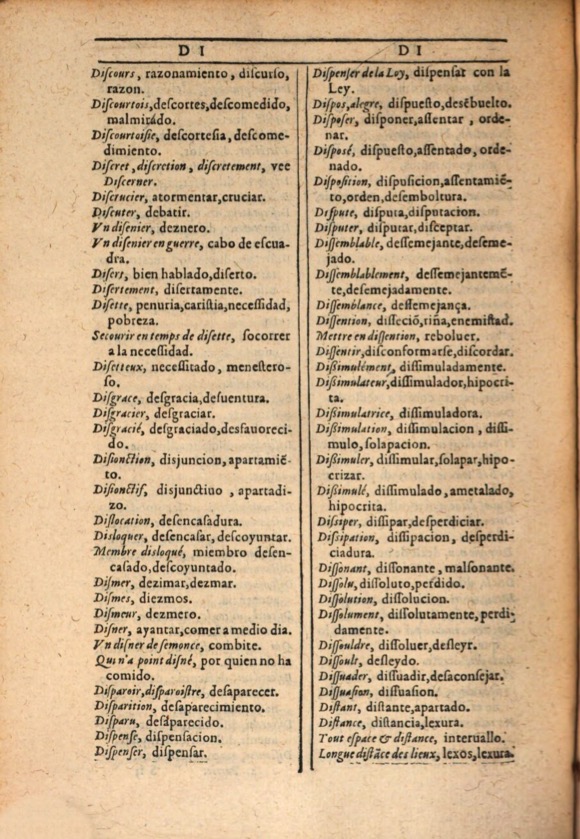 D I
Diſcours, razonamiento, diſcurſo,
razon.
Diſcourtois, deſcortes, deſcomedido,
malmirádo.
Diſcourtoiſie, deſcorteſia, deſcome-
dimiento.
Diſcret, diſcretion, diſcretement, vee
Diſcerner.
Diſcrucier, atormentar, cruciar.
Diſcuter, debatir.
Vn diſenier, deznero.
Vn diſenier en guerre, cabo de eſcua-
dra.
Diſert, bien hablado, diſerto.
Diſertement, diſertamente.
Diſette, penuria, cariſtia, neceſſidad,
pobreza.
Secourir en temps de diſette, ſocorrer
a la neceſſidad.
Diſetteux, neceſſitado, meneſtero-
ſo.
Diſgrace, deſgracia, deſuentura.
Diſgracier, deſgraciar.
Diſgracié, deſgraciado, desfauoreci-
do.
Diſionction, disjuncion, apartamiẽ-
to.
Diſionctif, disjunctiuo, apartadi-
zo.
Diſlocation, deſencaſadura.
Disloquer, deſencaſar, deſcoyuntar.
Membre disloqué, miembro deſen-
caſado, deſcoyuntado.
Diſmer, dezimar, dezmar.
Diſmes, diezmos.
Diſmeur, dezmero.
Diſner, ayantar, comer a medio dia.
Vn diſner de ſemonce, combite.
Qui n'a point diſné, por quien no ha
comido.
Diſparoir, diſparoiſtre, deſaparecer.
Diſparition, deſaparecimiento.
Diſparu, deſaparecido.
Diſpenſe, diſpenſacion.
Diſpenſer, diſpenſar.
D I
Diſpenſer de la Loy, diſpenſar con la
Ley.
Diſpos, alegre, diſpueſto, deſẽbuelto.
Diſpoſer, diſponer, aſſentar, orde-
nar.
Diſpoſé, diſpueſto, aſſentado, orde-
nado.
Diſpoſition, diſpuſicion, aſſentamiẽ-
to, orden, deſemboltura.
Diſpute, diſputa, diſputacion.
Diſputer, diſputar, diſceptar.
Diſſemblable, deſſemejante, deſeme-
jado.
Diſſemblablement, deſſemejantemẽ-
te, deſemejadamente.
Diſſemblance, deſſemejança.
Diſſention, diſſeciõ, riña, enemiſtad.
Mettre en diſſention, reboluer.
Diſſentir, diſconformarſe, diſcordar.
Diſsimulément, diſſimuladamente.
Diſsimulateur, diſſimulador, hipocri-
ta.
Diſsimulatrice, diſſimuladora.
Diſsimulation, diſſimulacion, diſſi-
mulo, ſolapacion.
Diſsimuler, diſſimular, ſolapar, hipo-
crizar.
Diſsimulé, diſſimulado, ametalado,
hipocrita.
Diſsiper, diſſipar, deſperdiciar.
Diſsipation, diſſipacion, deſperdi-
ciadura.
Diſſonant, diſſonante, malſonante.
Diſſolu, diſſoluto, perdido.
Diſſolution, diſſolucion.
Diſſolument, diſſolutamente, perdi-
damente.
Diſſouldre, diſſoluer, deſleyr.
Diſſoult, deſleydo.
Diſſuader, diſſuadir, deſaconſejar.
Diſſuaſion, diſſuaſion.
Diſtant, diſtante, apartado.
Diſtance, diſtancia, lexura.
Tout eſpace & diſtance, interuallo.
Longue diſtãce des lieux, lexos, lexura.